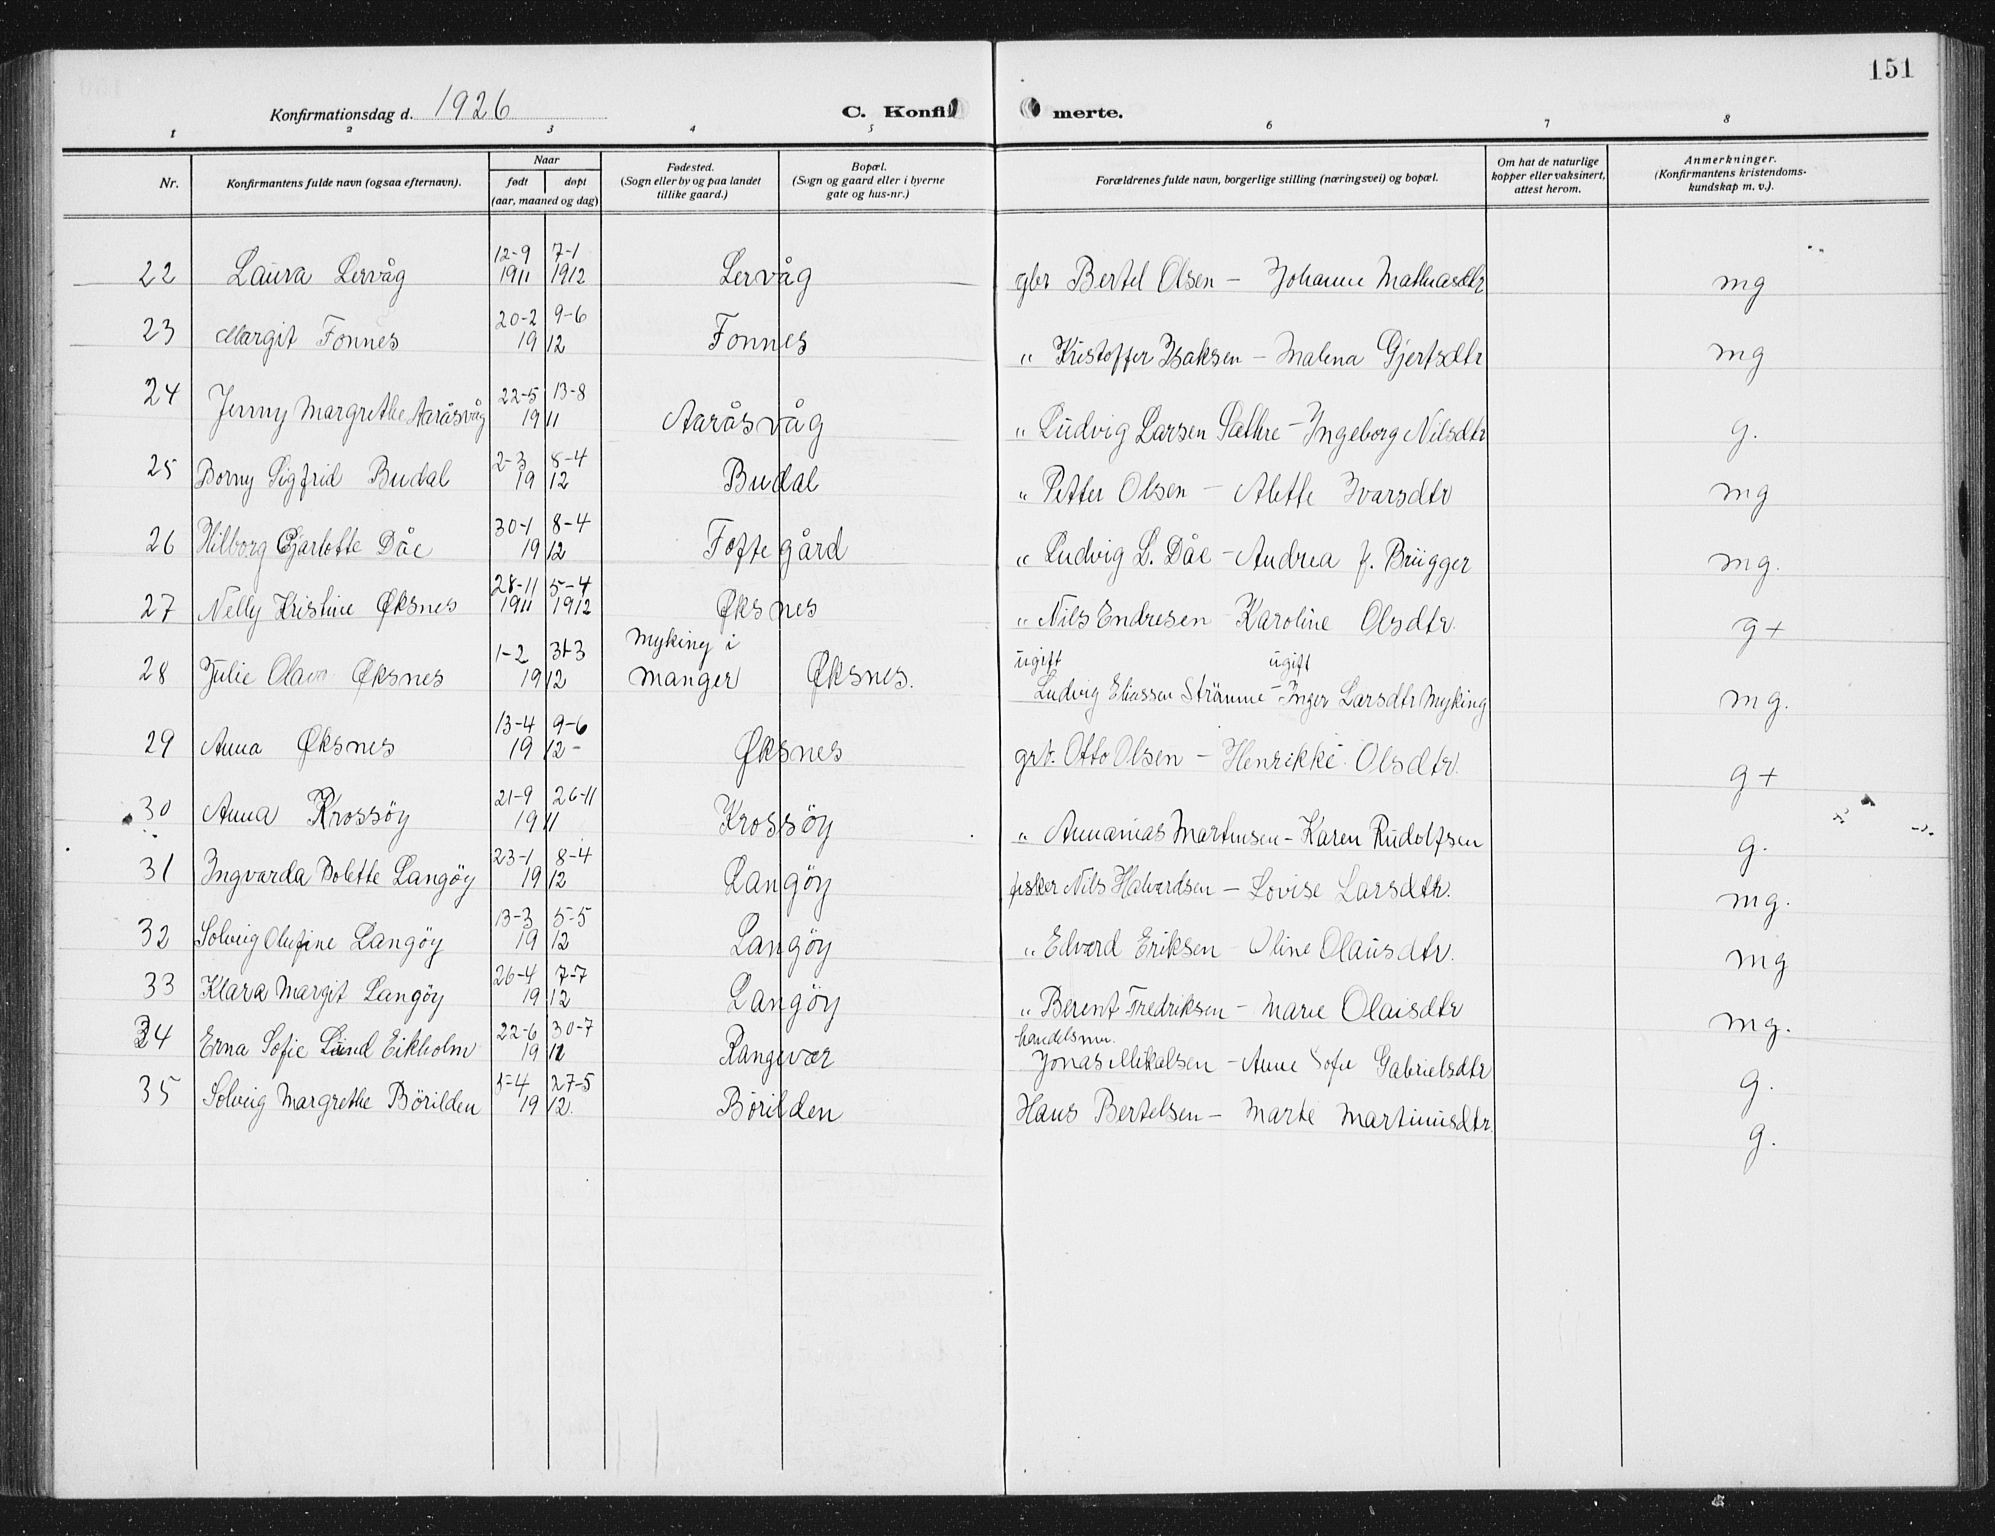 151
Konfirmationsdag d. 1926 C. Konfir merte.
1 2 3 4 5 6 7 8
Nr. Konfirmantens fulde navn (ogsaa efternavn). Naar født døpt (aar, maaned og dag) Fødested. (Sogn eller by og paa landet tillike gaard.) Bopæl. (Sogn og gaard eller i byerne gate og hus-nr.) Forældrenes fulde navn, borgerlige stilling (næringsvei) og bopæl. Om hat de naturlige kopper eller vaksinert, attest herom. Anmerkninger. (Konfirmantens kristendoms- kundskap m. v.).
22 Laura Lervåg 12-9 1911 7-1 1912 Lervåg gbr Bertel Olsen - Johanne Mathiasdtr mg
23 Margit Fonnes 20-2 9-6 1912 Fonnes " Kristoffer Isaksen - Malena Gjertsdtr mg
24 Jenny Margrethe Aaråsvåg 22-5 13-8 1911 Aaråsvåg " Ludvig Larsen Sæthre - Ingeborg Nilsdtr g.
25 Borny Sigfrid Budal 2-3 8-4 1912 Budal " Petter Olsen - Alette Ivarsdtr mg
26 Hilborg Gjarlotte Dåe 30-1 8-4 1912 Toftegård " Ludvig L. Dåe - Andrea f. Brügger mg.
27 Nelly Kristine Øksnes 28-11 1911 5-4 1912 Øksnes " Nils Endresen - Karoline Olsdtr. g+
28 Julie Olava Øksnes 1-2 31-3 1912 Myking i Manger Øksnes. ugift Ludvig Eliassen Strømme - ugift Inger Larsdtr Myking mg.
29 Anna Øksnes 13-4 9-6 1912- Øksnes grbr. Otto Olsen - Henrikke Olsdtr. g+
30 Anna Krossöy 21-9 26-11 1911 Krossöy " Annanias Martinsen - Karen Rudolfsen g.
31 Ingvarda Bolette Langöy 23-1 8-4 1912 Langöy fisker Nils Halvardsen - Lovise Larsdtr. mg.
32 Solveig Olufine Langöy 13-3 5-5 1912 Langöy " Edvard Eriksen - Oline Olausdtr. mg
33 Klara Margit Langöy 26-4 7-7 1912 Langöy " Berent Fredriksen - Marie Olaisdtr mg.
34 Erna Sofie Lund Eikholm 22-6 30-7 1911 Rangevær handelsm. Jonas Mikalsen - Anne Sofie Gabrielsdtr g.
35 Solveig Margrethe Börilden 5-4 27-5 1912. Börilden Hans Bertelsen - Marte Martinusdtr. g.